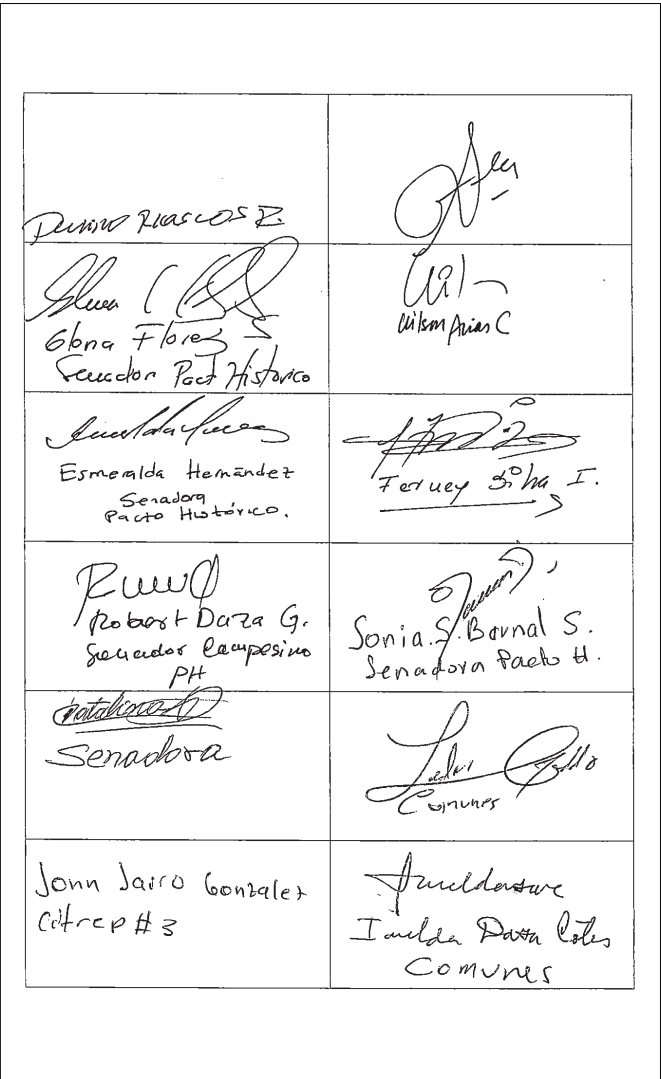 RIASCOS R.
Wilson Arias C
Gloria Florez S
Senador Pact Historico
Esmeralda Hernández
Senadora
Pacto Histórico.
Ferney Silva I.
Robert Daza G.
Senador Campesino
PH
Sonia.S.Bernal S.
Senadora Pacto H.
Catalina
Senadora
Comunes
Jonn Jairo Gonzalez
Citrep # 3
Imelda Daza Cotes
Comunes